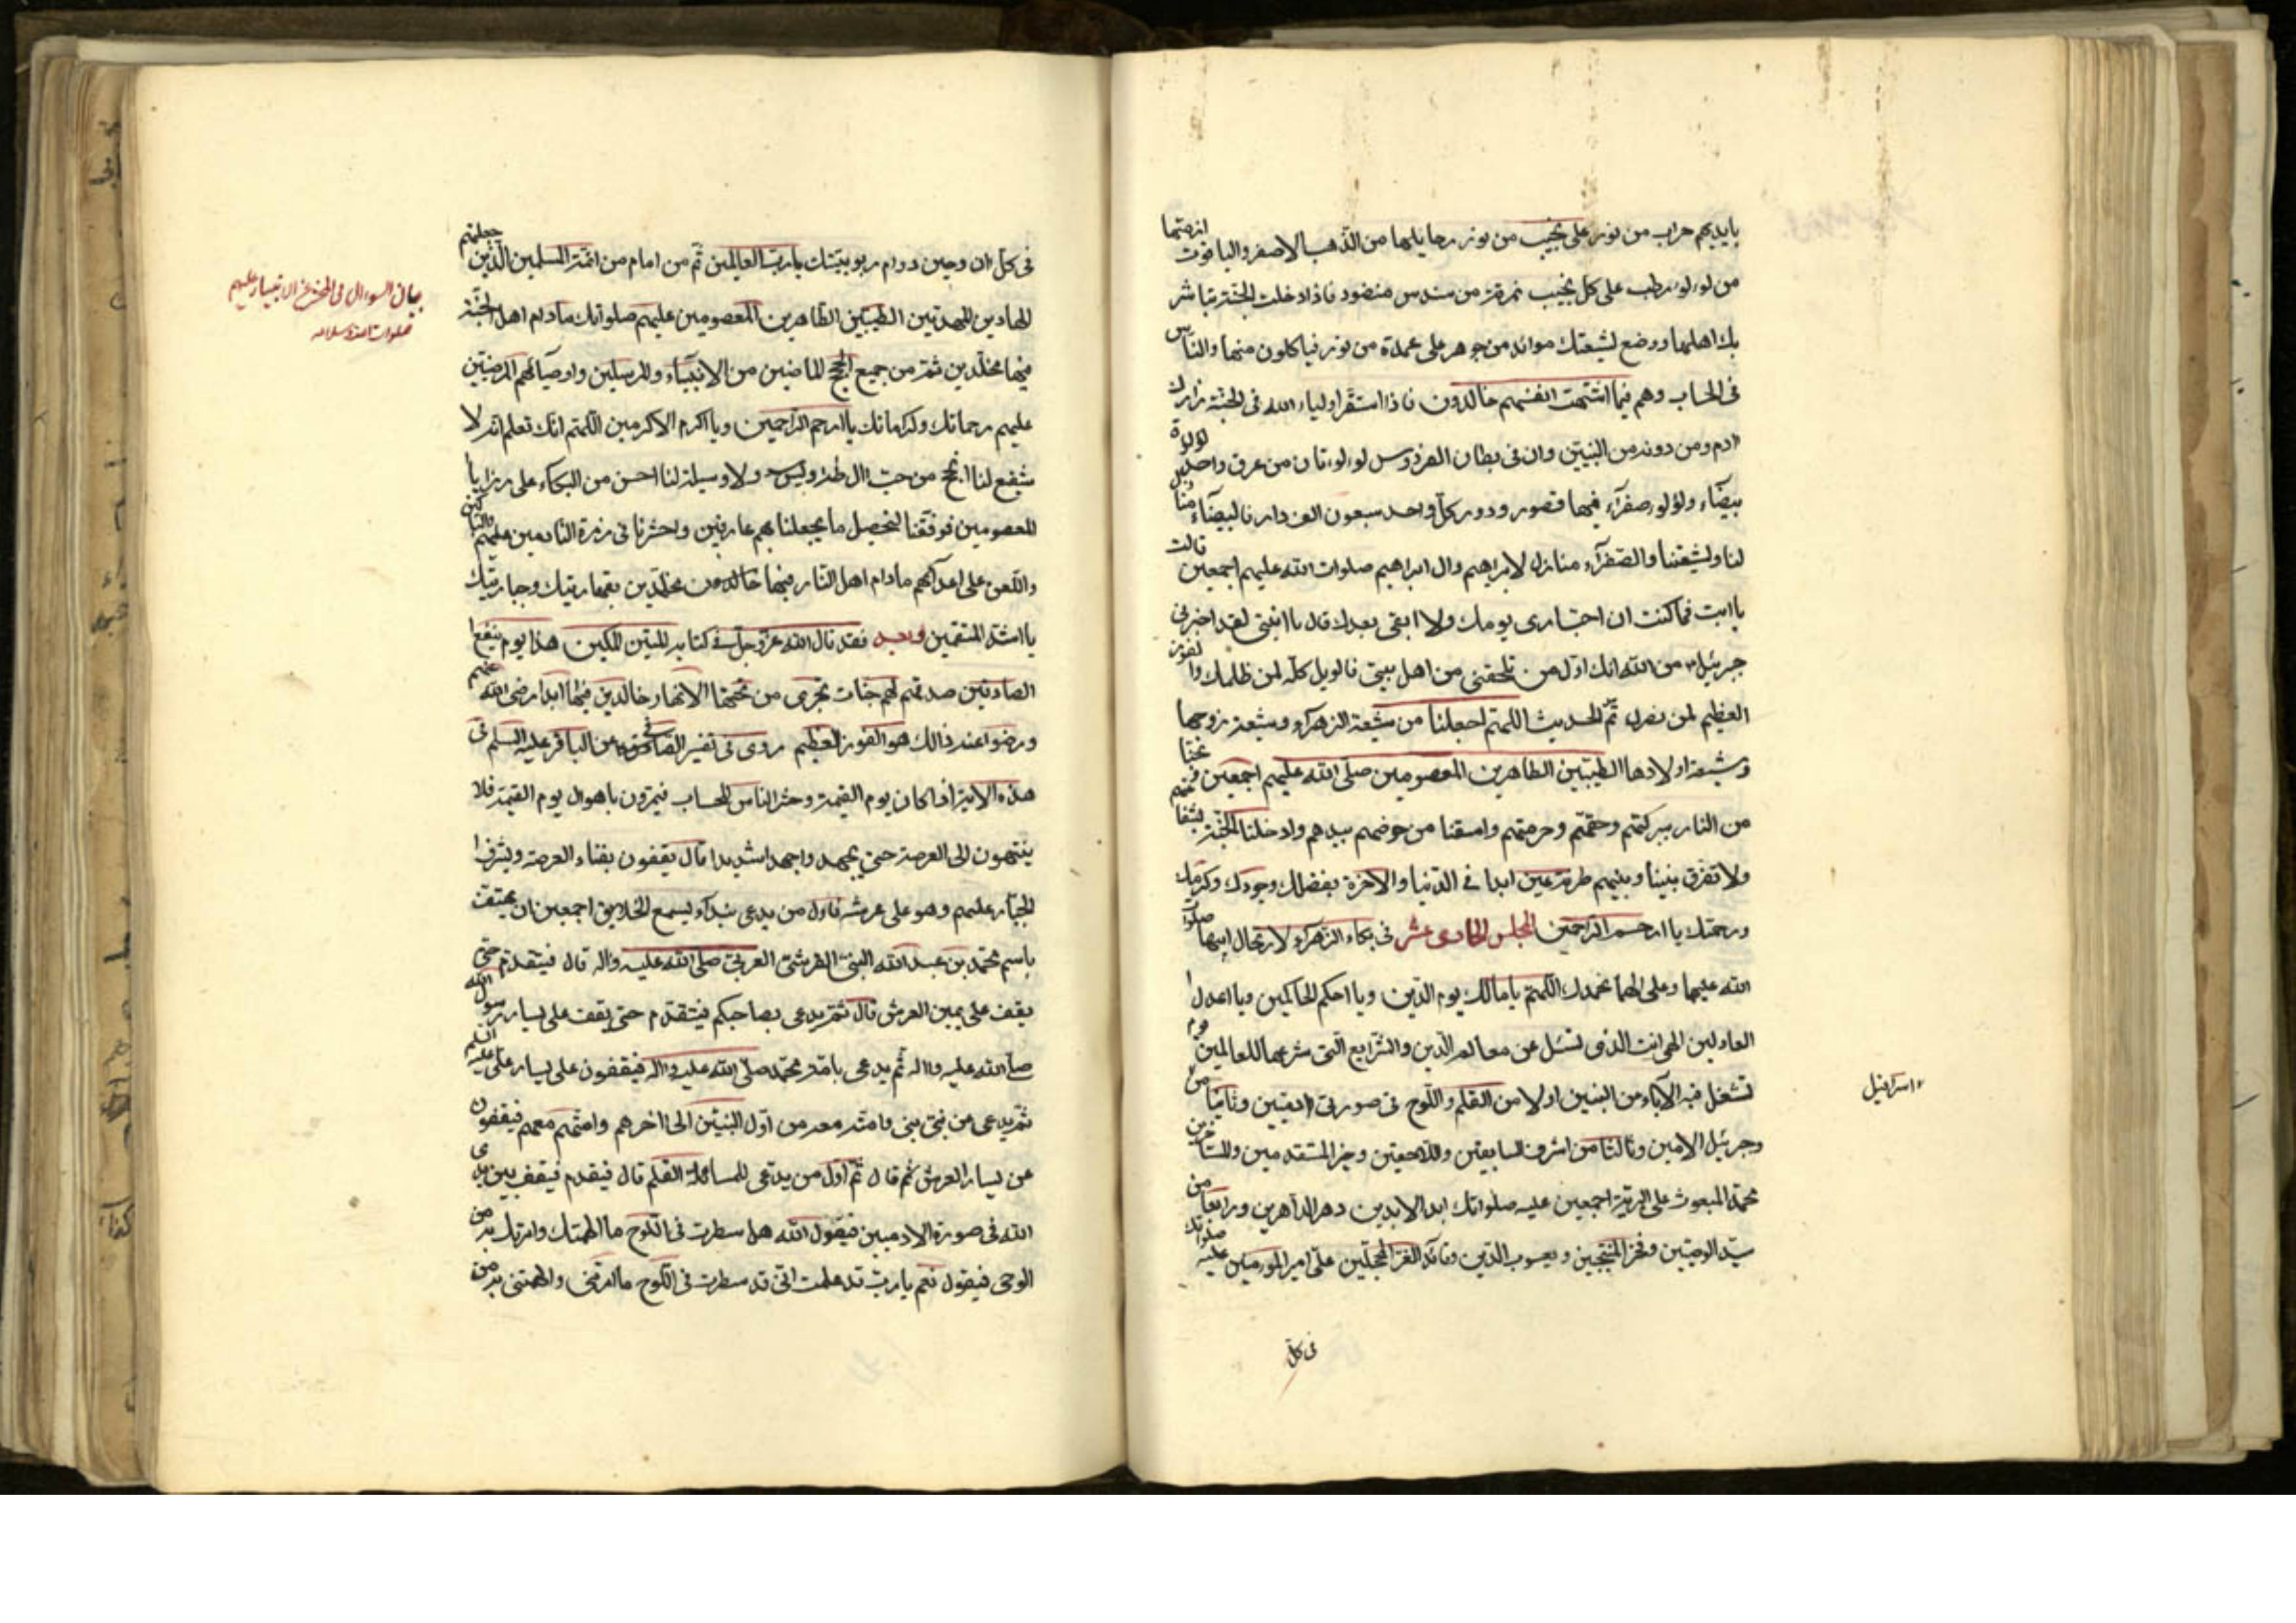 بايديهم حراب من نور على نجيب من نور رحايلها من الذهب الاصفر والياقوت ازمتها
من لولوء رطب على كل نجيب نمرقة من سندس منضود فاذا دخلت الجنة تباشر
بك اهلها ووضع لشيعتك موائد من جوهر على عمدة من نور فياكلون منها والناس
فى الحساب وهم فيما اشتهت انفسهم خالدون فاذا استقر اولياء الله فى الجنة زارك
ادم ومن دونه من النبيين وان فى بطان الفردوس لولوءتان من عرق واحد لولوة
بيضآء ولولوء صفرآء فيها قصور ودور كل واحد سبعون الف دار فالبيضآء منازل
لنا ولشيعتنا والصفرآء منازل لابراهيم وال ابراهيم صلوات الله عليهم اجمعين قالت
يا ابت فما كنت ان ارى يومك ولا ابقى بعدك قال يا ابنتى لقد اخبرنى
جبرئيل من الله انك اول من تلحقنى من اهل بيتى فالويل كله لمن ظلمك والفوز
العظيم لمن نصرك ثم الحديث اللهم اجعلنا من شيعة الزهرآء وشيعة زوجها
وشيعة اولادها الطيبين الطاهرين المعصومين صلى الله عليهم اجمعين ونجنا
من النار ببركتهم وحقهم وحرمتهم واسقنا من حوضهم بيدهم وادخلنا الجنة بشفاعتهم
ولا تفرق بيننا وبينهم طرفة عين ابدا فى الدنيا والاخرة بفضلك وجودك وكرمك
ورحمتك يا ارحم الراحمين المجلس الحادى عشر فى بكاء الزهرآء لارتحال ابيها صلوات
الله عليها وعلى الها نحمدك اللهم يا مالك يوم الدين ويا احكم الحاكمين ويا اعدل
العادلين الهى انت الذى تسئل عن معالم الدين والشرايع التى شرعها للعالمين يوم
تشغل فيه الآباء من البنين اولا من القلم واللوح فى صورتى ادميين وثانيا من
اسرافيل
وجبرئيل الامين وثالثا من اشرف السابقين واللاحقين وخير المتقدمين والمتاخرين
محمد المبعوث على البرية اجمعين عليه صلواتك ابد الابدين دهر الداهرين ورابعا من
سيد الوصيين وفخر المنتجبين ويعسوب الدين وقائد الغر المحجلين على امير المؤمنين عليه صلواتك
فى كل
فى كل ان وحين دوام ربوبيتك يا رب العالمين ثم من امام من ائمة المسلمين الذين جعلتهم
بيان السوال فى المحشر عن الانبياء عليهم
صلوات الله وسلامه
الهادين المهديين الطيبين الطاهرين المعصومين عليهم صلواتك مادام اهل الجنة
فيها مخلدين ثم من جميع الحجج الماضين من الانبيآء والمرسلين واوصيآئهم المرضيين
عليهم رحماتك وكراماتك يا ارحم الراحمين ويا اكرم الاكرمين اللهم انك تعلم انه لا
شفيع لنا انجح من حب ال طه ويس ولا وسيلة لنا احسن من البكاء على رزايا
المعصومين فوفقنا لتحصيل ما يجعلنا بهم عارفين واحشرنا فى زمرة النادمين عليهم والباكين
واللعن على اعدآئهم مادام اهل النار فيها خالدون مخلدين بقهاريتك وجباريتك
يا اشد المنتقمين وبعد فقد قال الله عز وجل فى كتابه المتين المكين هذا يوم ينفع
الصادقين صدقهم لهم جنات تجرى من تحتها الانهار خالدين فيها ابدا رضى الله عنهم
ورضوا عنه ذالك هو الفوز العظيم روى فى تفسير الصافى عن الباقر عليه السلم فى
هذه الاية اذا كان يوم القيمة وحشر الناس للحساب فيمرون باهوال يوم القيمة فلا
ينتهون الى العرصة حتى يجهدوا جهدا شديدا قال يقفون بفناء العرصة ويشرف
الجبار عليهم وهو على عرشه فاول من يدعى بندآء ليسمع الخلايق اجمعين ان يهتف
باسم محمد بن عبد الله النبى القرشى العربى صلى الله عليه واله قال فيتقدم حتى
يقف على يمين العرش قال ثم يدعى بصاحبكم فيتقدم حتى يقف على يسار رسول الله
صلى الله عليه واله ثم يدعى بامة محمد صلى الله عليه واله فيقفون على يسار على عليه السلم
ثم يدعى من نبى نبى وامته معه من اول النبيين الى اخرهم وامتهم معهم فيقفون
عن يسار العرش ثم قال ثم اول من يدعى للمسائلة القلم قال فيقدم فيقف بين يدى
الله فى صورة الادميين فيقول الله هل سطرت فى اللوح ما الهمتك وامرتك به من
الوحى فيقول نعم يا رب قد علمت انى قد سطرت فى اللوح ما امرتنى والهمتنى به من